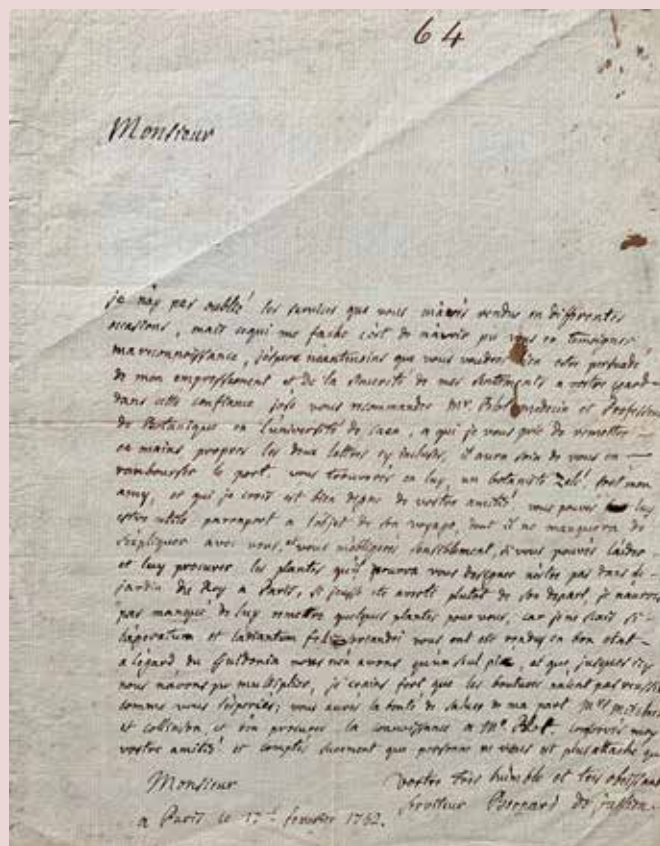 64
Monsieur
je n'ay pas oublié les services que vous m'avés rendus en differentes
ocasions, mais ce qui me fache c'est de n'avoir pu vous en temoigner
ma reconnoissance, j'espere neantmoins que vous voudrez bien estre persuadé
de mon empressement et de la sincerité de mes sentiments a vostre egard
dans cette confiance j'ose vous recommander Mr. Blot medecin et Professeur
de Botanique en l'université de Caen, a qui je vous prie de remettre
en mains propres les deux lettres cy incluses, il aura soin de vous en
rembourser le port. vous trouverés en luy, un botaniste zelé, fort mon
amy, et qui je crois est bien digne de vostre amitié vous pouvés luy
estre utile par raport a l'objet de son voyage, dont il ne manquera de
s'expliquer avec vous, et vous m'obligerés sensiblement, si vous pouvés l'aider
et luy procurer les plantes qu'il pourra vous designer n'estre pas dans le
jardin du Roy a Paris, si j'eusse été averti plutot de son depart, je n'aurois
pas manqué de luy remettre quelques plantes pour vous, car je ne scais si
et l'adiantum vous ont été rendus en bon etat
a l'égard du nous n'en avons qu'un seul pié, et que jusques icy
nous n'avons pu multiplier, je crains fort que les boutures n'aient pas reussi
comme vous l'esperiés; vous aurés la bonté de saluer de ma part Mrs
et Collinson, et d'en procurer la connoissance a Mr. Blot. conservés moy
vostre amitié et comptés surement que personne ne vous est plus attaché que
Monsieur
vostre tres humble et tres obeissant
serviteur Bernard de Jussieu
a Paris le 17e. fevrier 1762.